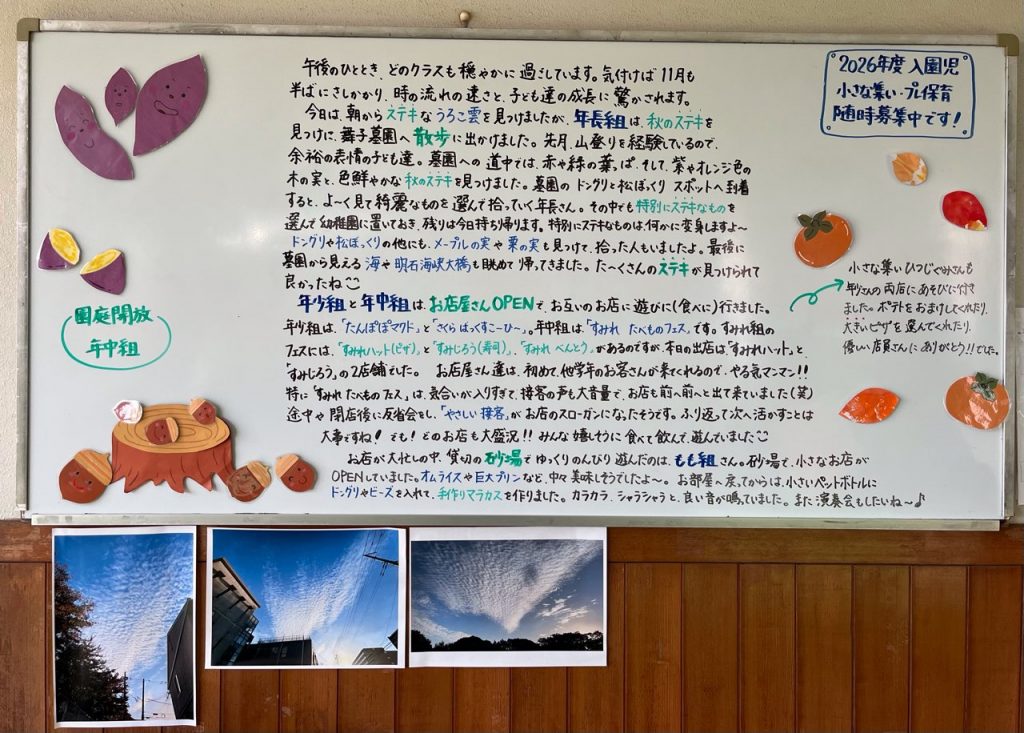 午後のひととき、どのクラスも穏やかに過ごしています。気付けば11月も
半ばにさしかかり、時の流れの速さと、子ども達の成長に驚かされます。
今日は、朝からステキなうろこ雲を見つけましたが、年長組は、秋のステキを
見つけに、舞子墓園へ散歩に出かけました。先月、山登りを経験しているので、
余裕の表情の子ども達。墓園への道中では、赤や緑の葉っぱ、そして、紫やオレンジ色の
木の実と、色鮮やかな秋のステキを見つけました。墓園のドングリと松ぼっくりスポットへ到着
すると、よ〜く見て綺麗なものを選んで拾っていく年長さん。その中でも特別にステキなものを
選んで幼稚園に置いておき、残りは今日持ち帰ります。特別にステキなものは、何かに変身しますよ〜
ドングリや松ぼっくりの他にも、メープルの実や栗の実も見つけて、拾った人もいましたよ。最後に
墓園から見える海や明石海峡大橋も眺めて帰ってきました。た〜くさんのステキが見つけられて
良かったね
年少組と年中組は、お店屋さんOPENで、お互いのお店に遊びに(食べに)行きました。
年少組は、「たんぽぽマクド」と「さくらばっくすこーひー」。年中組は、「すみれ たべものフェス」です。すみれ組の
フェスには、「すみれハット(ピザ)」と「すみじろう(寿司)」、「すみれ べんとう」があるのですが、本日の出店は、「すみれハット」と、
「すみじろう」の2店舗でした。 お店屋さん達は、初めて、他学年のお客さんが来てくれるので、やる気マンマン!!
特に「すみれ たべものフェス」は、気合いが入りすぎて、接客の声も大音量で、お店も前へ前へと出て来ていました(笑)
途中や閉店後に反省会をし、「やさしい接客」がお店のスローガンになったそうです。ふり返って次へ活かすことは
大事ですね! でも!どのお店も大盛況!!みんな嬉しそうに食べて飲んで、遊んでいました
お店が大忙しの中、貸切の砂場でゆっくりのんびり遊んだのは、もも組さん。砂場で、小さなお店が
OPENしていました。オムライスや巨大プリンなど、中々美味しそうでしたよ〜。お部屋へ戻ってからは、小さいペットボトルに
ドングリやビーズを入れて、手作りマラカスを作りました。カラカラ、シャラシャラと、良い音が鳴っていました。また演奏会もしたいね〜♪
2026年度 入園児
小さな集い・プレ保育
随時募集中です!
園庭開放
年中組
小さな集い ひつじぐみさんも
年少さんの両店にあそびに行き
ました。ポテトをおまけしてくれたり、
大きいピザを選んでくれたり、
優しい店員さんにありがとう!!でした。